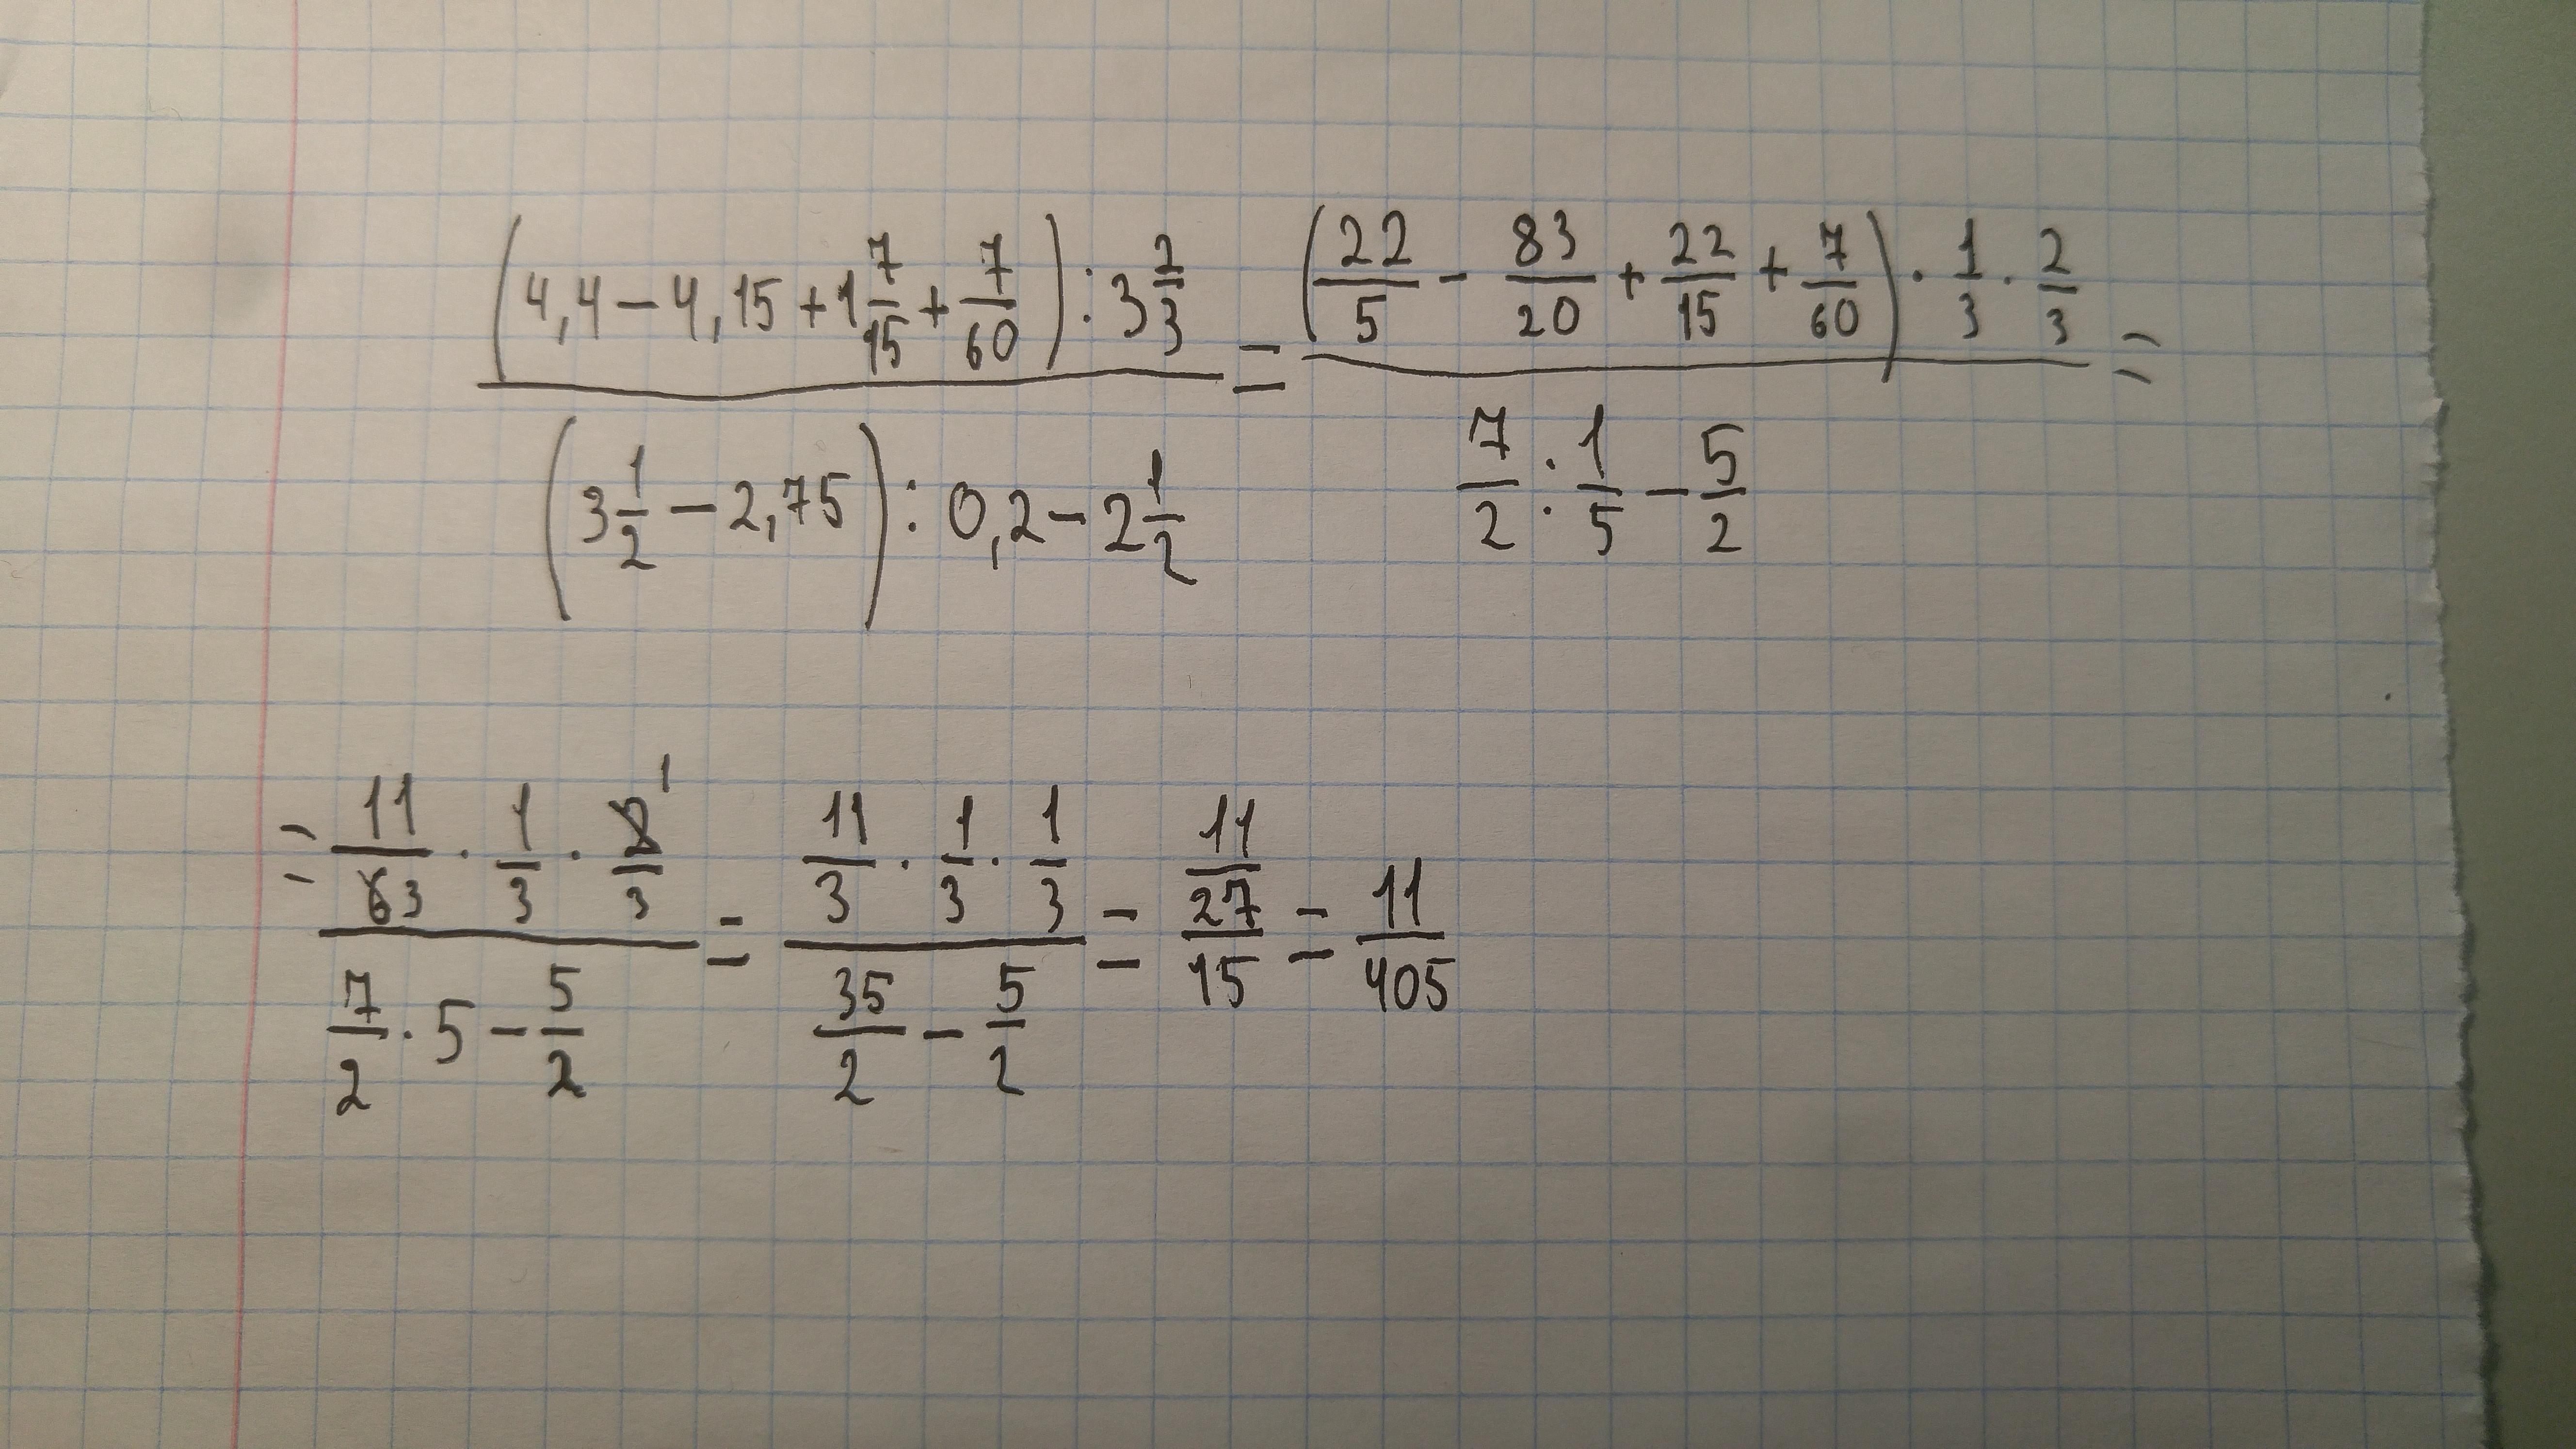 (4,4 − 4,15 + 1 7/15 + 7/60) : 3 2/3 / (3 1/2 − 2,75) : 0,2 − 2 1/2 = (22/5 − 83/20 + 22/15 + 7/60) · 1/3 · 2/3 / 7/2 : 1/5 − 5/2 =
= 11/63 · 1/3 · 2 1/3 / 7/2 · 5 − 5/2 = 11/3 · 1/3 · 1/3 / 35/2 − 5/2 = 11/27 / 15 = 11/405